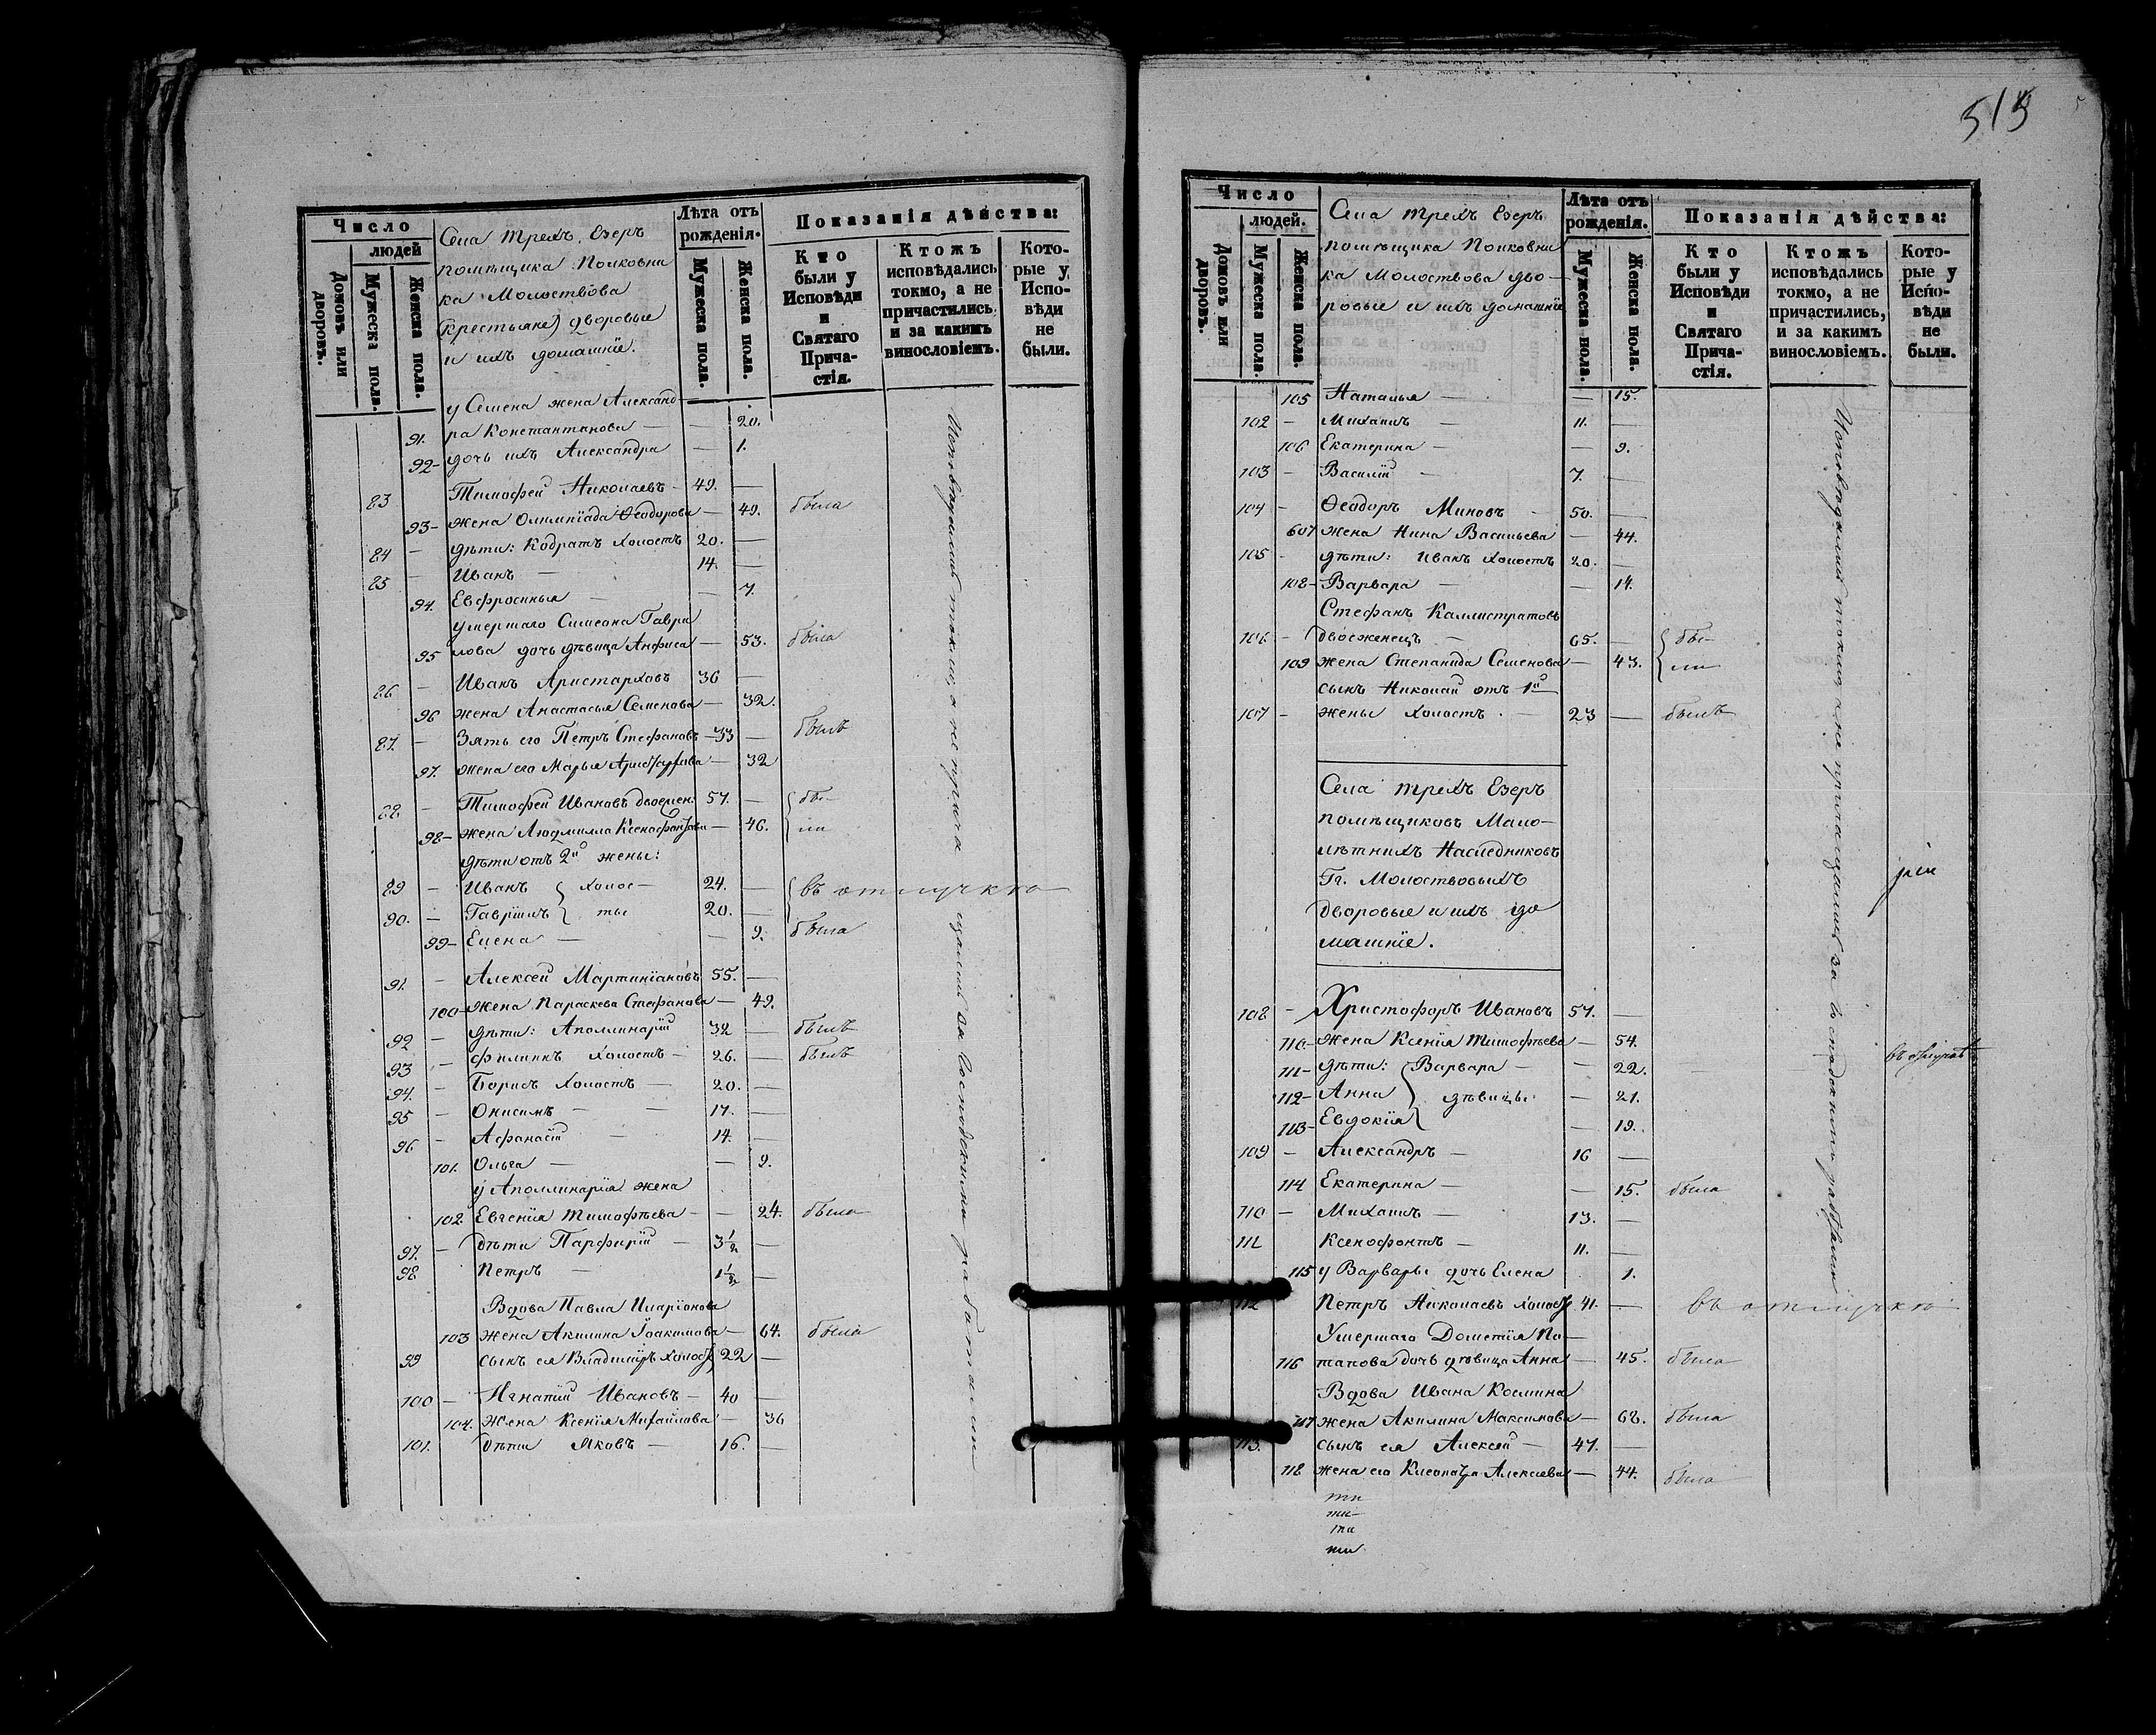 515
Число
людей
Домовъ или дворовъ.
Мужеска пола.
Женска пола.
Села Трехъ Езеръ
помѣщика Полковни
ка Молоствова
(крестьяне) дворовые
и ихъ домашніе.
Лѣта отъ рожденія.
Мужеска пола.
Женска пола.
Показанія дѣйства:
Кто были у Исповѣди и Святаго Причастія.
Ктожъ исповѣдались токмо, а не причастились, и за какимъ винословіемъ.
Которые у Исповѣди не были.
у Семена жена Александ
91. ра Константинова — — 20.
92 - дочь ихъ Александра — 1.
83 Тимофей Николаевъ - 49. —
93 - жена Олимпіада Ѳеодорова — 49. была
84 - дѣти: Кодратъ холостъ 20. —
85 - Иванъ — 14. —
94. Евфросинья — — 7.
умершаго Симеона Гаври
95 лова дочь дѣвица Анфиса — 53. была
86 - Иванъ Аристарховъ 36 —
96 жена Анастасья Семенова — 32.
87. - Зять его Петръ Стефановъ — 33 — былъ
97. жена его Марья Аристархова — 32
88 - Тимофей Ивановъ двоежен: 57. — бы-
98 - жена Людмилла Ксенофонтова — 46. ли
дѣти отъ 2й жены:
89 - Иванъ холос- 24. — въ отлучкѣ
90. - Гавріилъ ты 20. —
99 - Елена — — 9. была
91. - Алексей Мартиніановъ 55. —
100 - жена Параскева Стефанова — 49.
92 - дѣти: Аполлинарій 32 — былъ
93 - Филиппъ холостъ - 26. — былъ
94. - Борисъ холостъ — 20. —
95 - Онисимъ — — 17. —
96 - Афанасій — 14. —
101. Ольга — — 9.
у Аполлинарія жена
102 Евгенія Тимофѣева - — 24. была
97. - дѣти Парфирій — 3½ —
98 Петръ — 1½ —
Вдова Павла Иларіонова
103 жена Акилина Іоакимова — 64. была
99 сынъ ея Владиміръ холост 22 —
100 - Игнатій Ивановъ - 40 —
104. жена Ксенія Михайлова — 36
101. дѣти Яковъ — 16. —
Исповѣдались токмо, а не прича щались за господскими работами
Число
людей.
Домовъ или дворовъ.
Мужеска пола.
Женска пола.
Села Трехъ Езеръ
помѣщика Полковни
ка Молоствова дво-
ровые и ихъ домашніе
Лѣта отъ рожденія.
Мужеска пола.
Женска пола.
Показанія дѣйства:
Кто были у Исповѣди и Святаго Причастія.
Ктожъ исповѣдались токмо, а не причастились, и за какимъ винословіемъ.
Которые у Исповѣди не были.
105 Наталья — — 15.
102 - Михаилъ — 11. —
106 Екатерина — — 9.
103 - Василій — 7. —
104 - Ѳеодоръ Миновъ - 50. —
607 жена Нина Васильева — 44.
105 - дѣти: Иванъ холостъ 20. —
108 - Варвара — — 14.
Стефанъ Каллистратовъ
106. - двоеженецъ — 65. — бы-
109 жена Степанида Семенова — 43. ли
сынъ Николай отъ 1й
107 - жены холостъ. — 23 — былъ
Села Трехъ Езеръ
помѣщиковъ Мало-
лѣтнихъ Наслѣдниковъ
Гг. Молоствовыхъ
дворовые и ихъ до
машніе.
108 - Христофоръ Ивановъ 57. —
110 - жена Ксенія Тимофѣева — 54.
111 - дѣти: Варвара — — 22. въ отлучкѣ
112 - Анна дѣвицы — 21.
113 - Евдокія — 19.
109 - Александръ — 16 —
114 Екатерина — — 15. была
110 - Михаилъ — 13. —
111 Ксенофонтъ — 11. —
115 у Варвары дочь Елена 1.
112 Петръ Николаевъ холост 41. — въ отлучкѣ
Умершаго Дометія По-
116 тапова дочь дѣвица Анна — 45. была
Вдова Ивана Космина
117 жена Акилина Максимова — 68. была
113. сынъ ея Алексей — 47. —
118 жена его Клеопатра Алексеева — 44. была
Исповѣдались токмо а не причащались за господскими работами